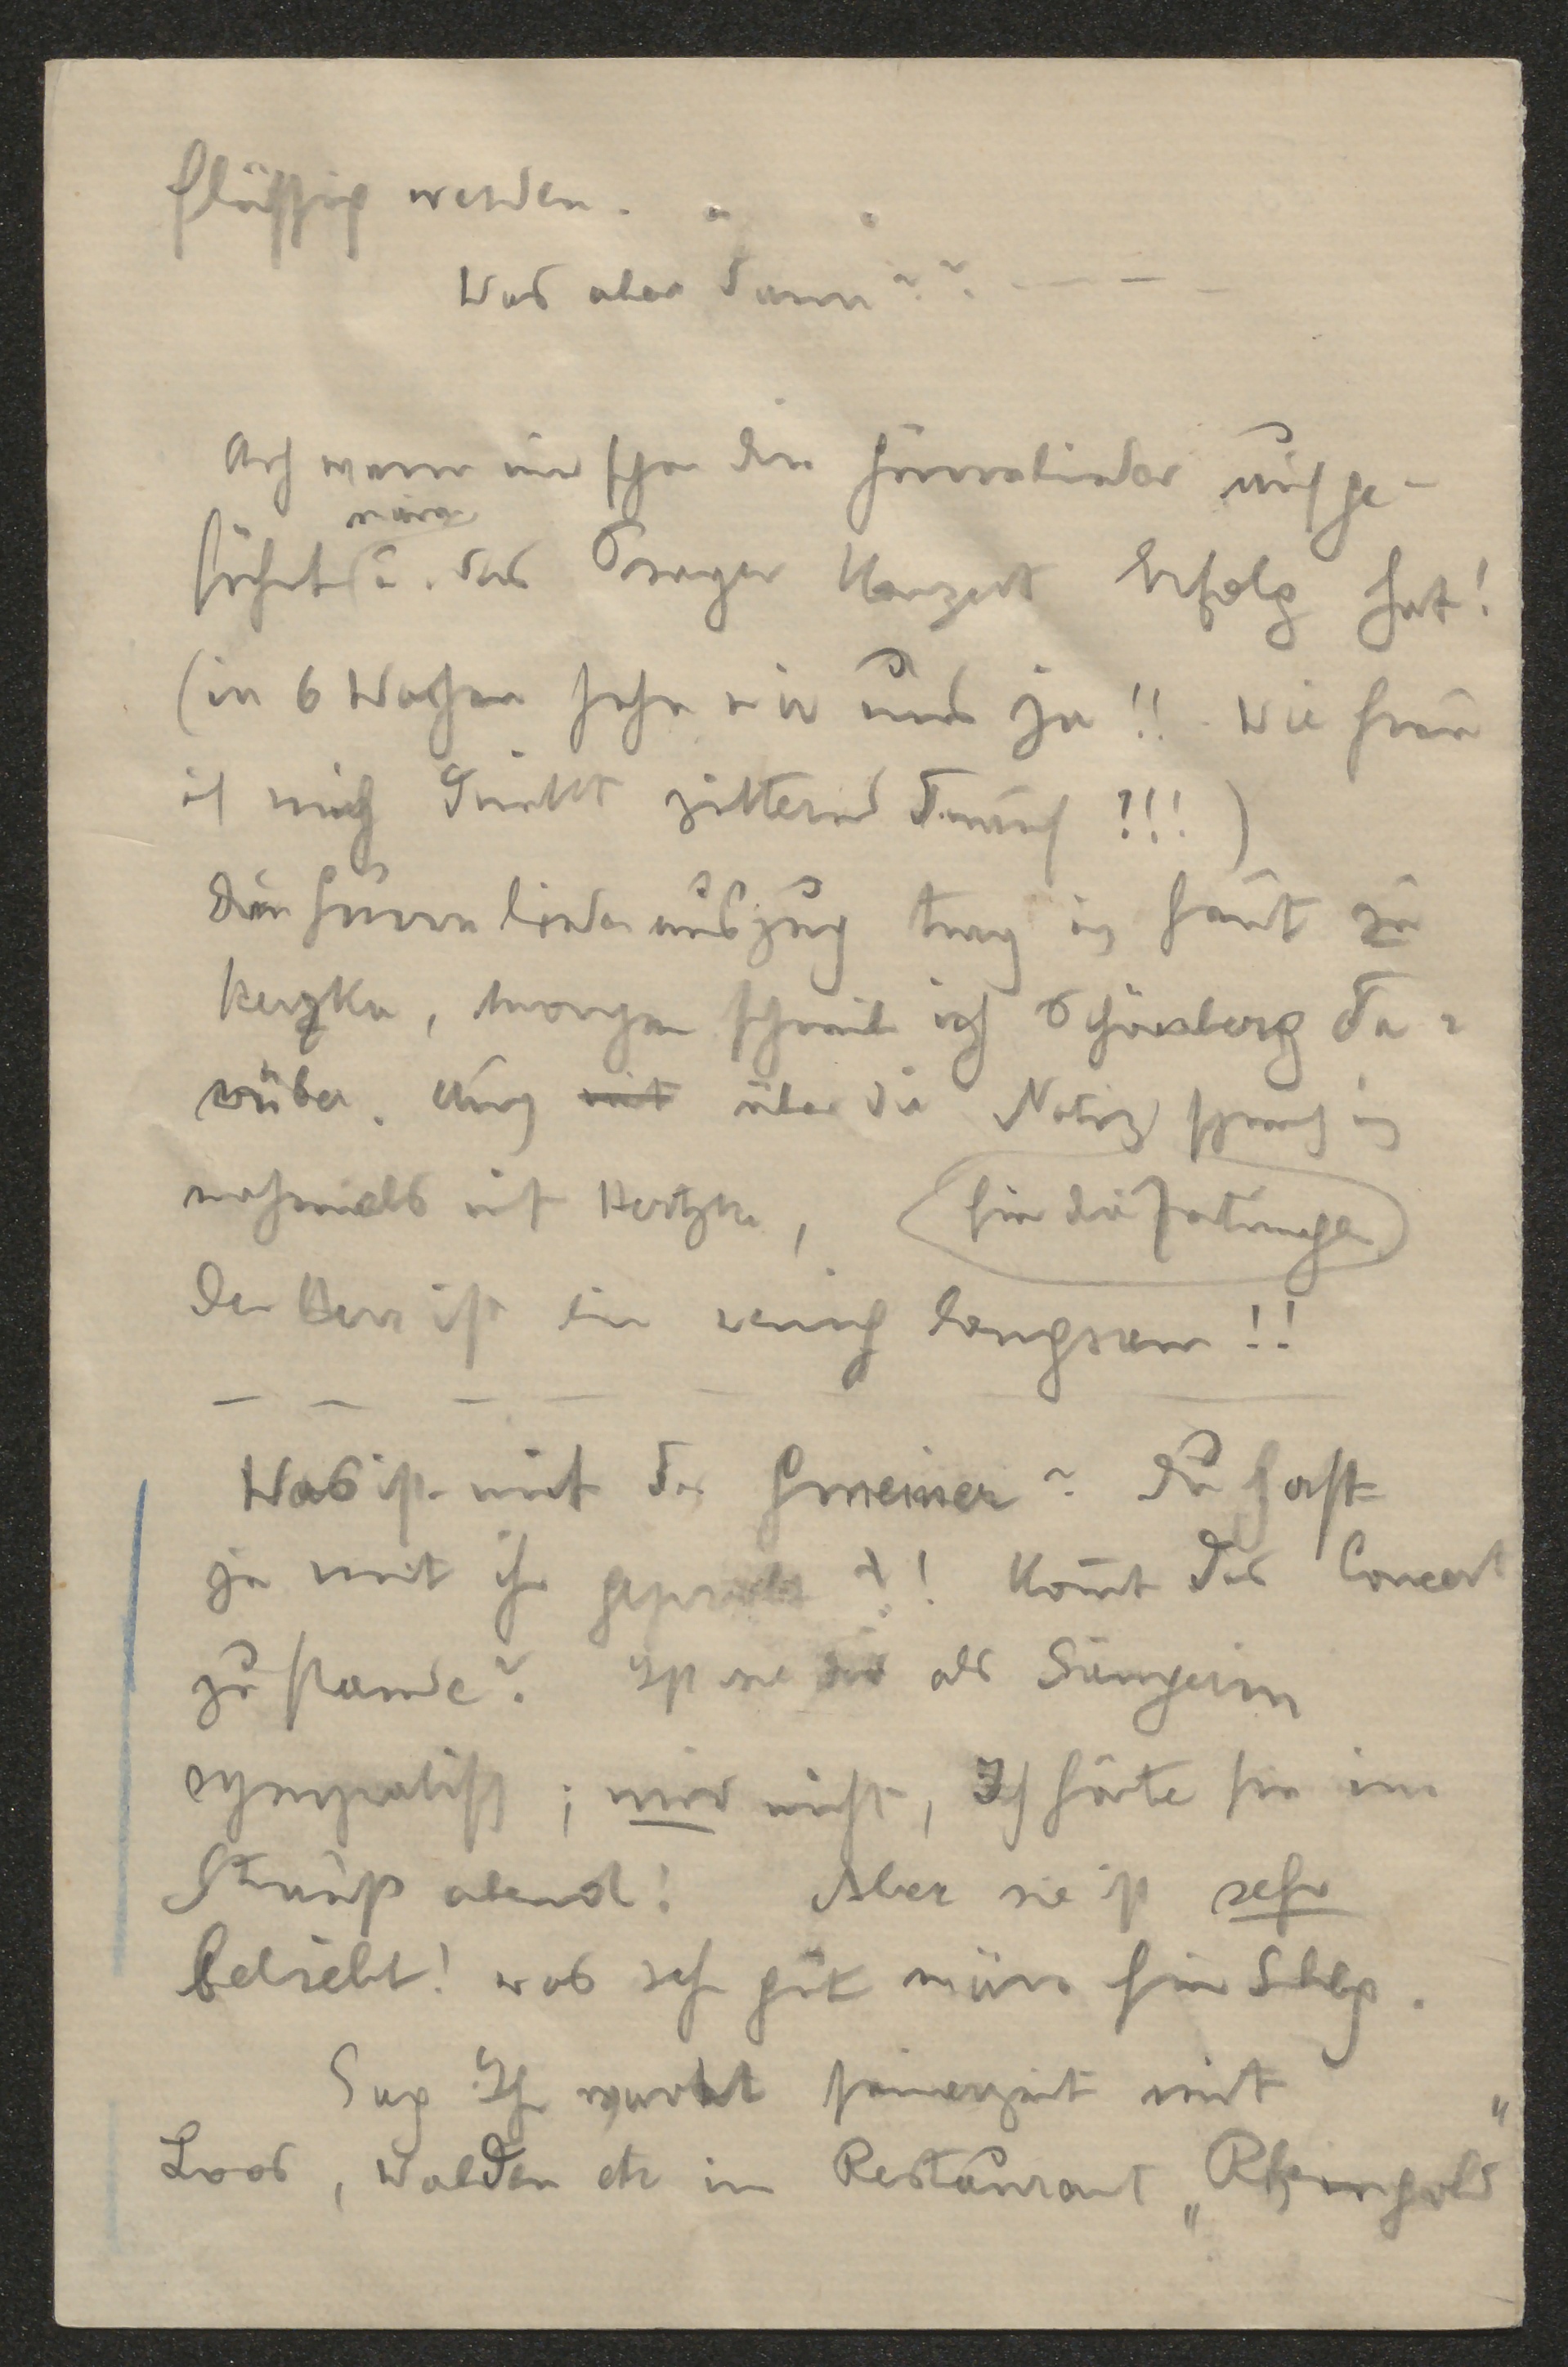 flüssig werden. . .
Was aber dann?? — — —
Ach wenn nur schon die Gurrelieder aufge-
wären
führt u. das Prager Konzert Erfolg hat!
(in 6 Wochen sehn wir uns ja!! Wie freu
ich mich direkt zitternd darauf?!!!)
Den Gurreliederauszug trag ich heut zu
Hertzka, morgen schreib ich Schönberg da-
rüber. Auch mit über die Notiz sprach ich
nochmals mit Hertzka, für die Zeitungen
Der Herr ist ein wenig langsam!!
Was ist mit der Gmeiner? Du hast
ja mit ihr gesprochen?! Kommt das Concert
zustande? Ist sie dir als Sängerin
sympatisch; mir nicht, Ich hörte sie im
Straußabend! Aber sie ist sehr
beliebt! was sehr gut wäre für Schbg.
Sag Ihr wart seinerzeit mit
Loos, Walden etc im Restaurant „Rheingold"